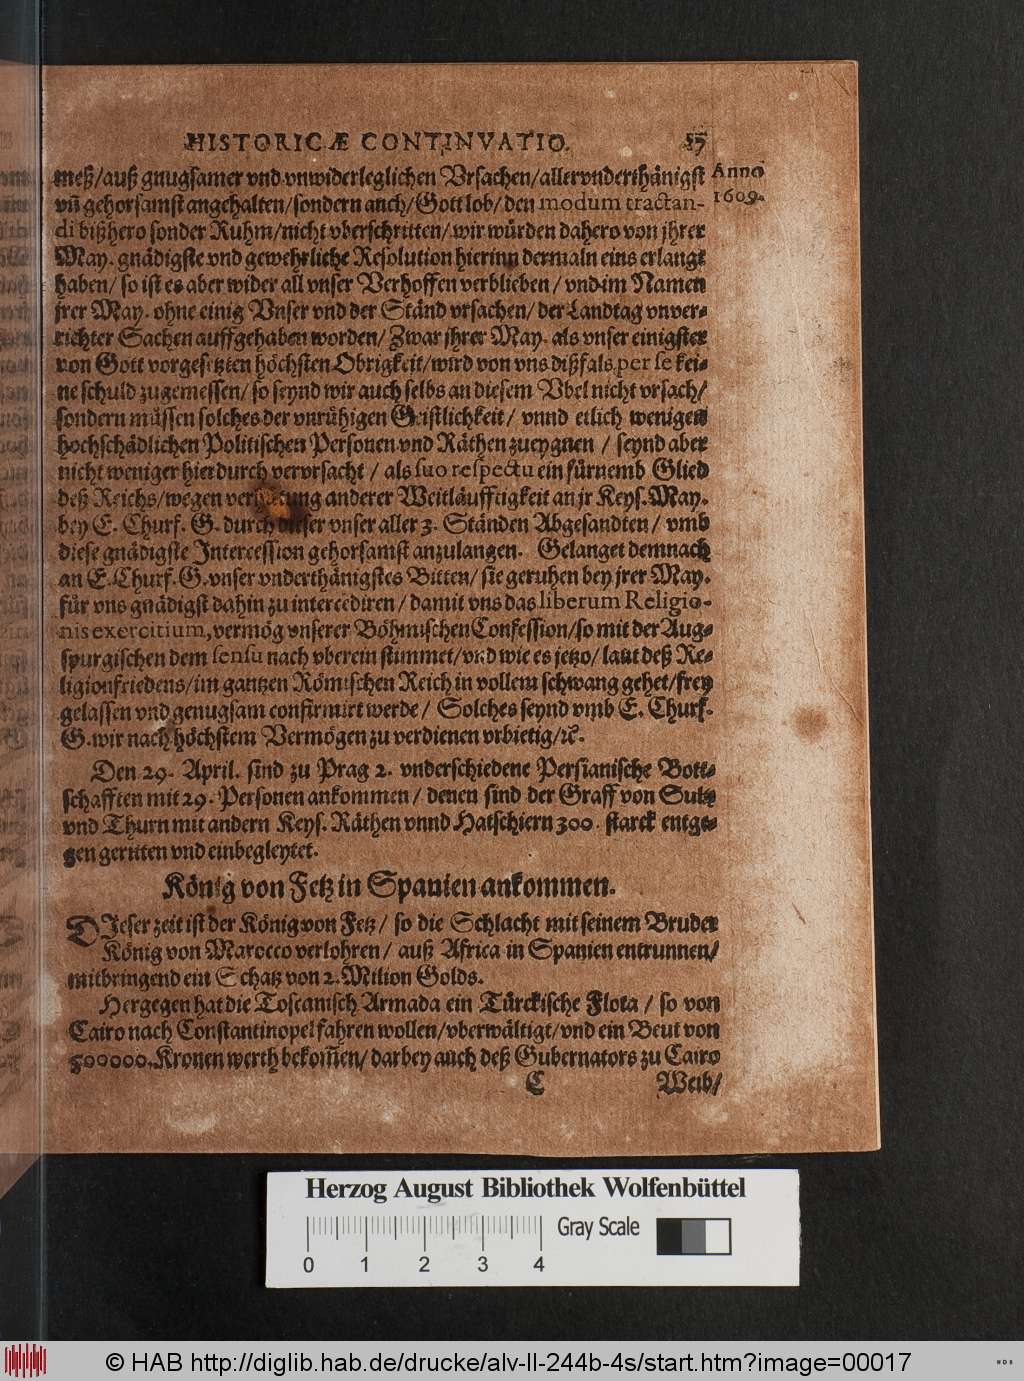 HISTORICÆ CONTINVATIO. 57
Anno
1609.
meß/auß gnugsamer vnd vnwiderleglichen Vrsachen/allervnderthänigst
vñ gehorsamst angehalten/sondern auch/Gott lob/den modum tractan-
di bißhero sonder Ruhm/nicht vberschritten/wir würden dahero von jhrer
May. gnädigste vnd gewehrliche Resolution hierinn dermaln eins erlangt
haben/ so ist es aber wider all vnser Verhoffen verblieben/ vnd im Namen
jrer May. ohne einig Vnser vnd der Ständ vrsachen/ der Landtag vnver-
richter Sachen auffgehaben worden/ Zwar jhrer May. als vnser einigster
von Gott vorgesetzten höchsten Obrigkeit/wird von vns dißfals per se kei-
ne schuld zugemessen/ so seynd wir auch selbs an diesem Vbel nicht vrsach/
sondern müssen solches der vnrühigen Geistlichkeit/ vnnd etlich wenigen
hochschädlichen Politischen Personen vnd Räthen zueygnen / seynd aber
nicht weniger hierdurch vervrsacht / als suo respectu ein fürnemb Glied
deß Reichs/wegen anderer Weitläufftigkeit an jr Keys. May.
bey E. Churf. G. durch dieser vnser aller 3. Ständen Abgesandten/ vmb
diese gnädigste Intercession gehorsamst anzulangen. Gelanget demnach
an E. Churf. G. vnser vnderthänigstes Bitten/ sie geruhen bey jrer May.
für vns gnädigst dahin zu intercediren / damit vns das liberum Religio-
nis exercitium, vermög vnserer Böhmischen Confession/so mit der Aug-
spurgischen dem sensu nach vberein stimmet/vnd wie es jetzo/ laut deß Re-
ligionfriedens/im gantzen Römischen Reich in vollem schwang gehet/frey
gelassen vnd genugsam confirmirt werde/ Solches seynd vmb E. Churf.
G. wir nach höchstem Vermögen zu verdienen vrbietig/ꝛc.
Den 29. April. sind zu Prag 2. vnderschiedene Persianische Bott-
schafften mit 29. Personen ankommen / denen sind der Graff von Sultz
vnd Thurn mit andern Keys. Räthen vnnd Hatschiern 300. starck entge-
gen geritten vnd einbegleytet.
König von Fetz in Spanien ankommen.
DIeser zeit ist der König von Fetz/ so die Schlacht mit seinem Bruder
König von Marocco verlohren/ auß Africa in Spanien entrunnen/
mitbringend ein Schatz von 2. Milion Golds.
Hergegen hat die Toscanisch Armada ein Türckische Flota / so von
Cairo nach Constantinopel fahren wollen/vberwältigt/vnd ein Beut von
500000. Kronen werth bekom̃en/ darbey auch deß Gubernators zu Cairo
C Weib/
Herzog August Bibliothek Wolfenbüttel
Gray Scale
0 1 2 3 4
© HAB http://diglib.hab.de/drucke/alv-ll-244b-4s/start.htm?image=00017